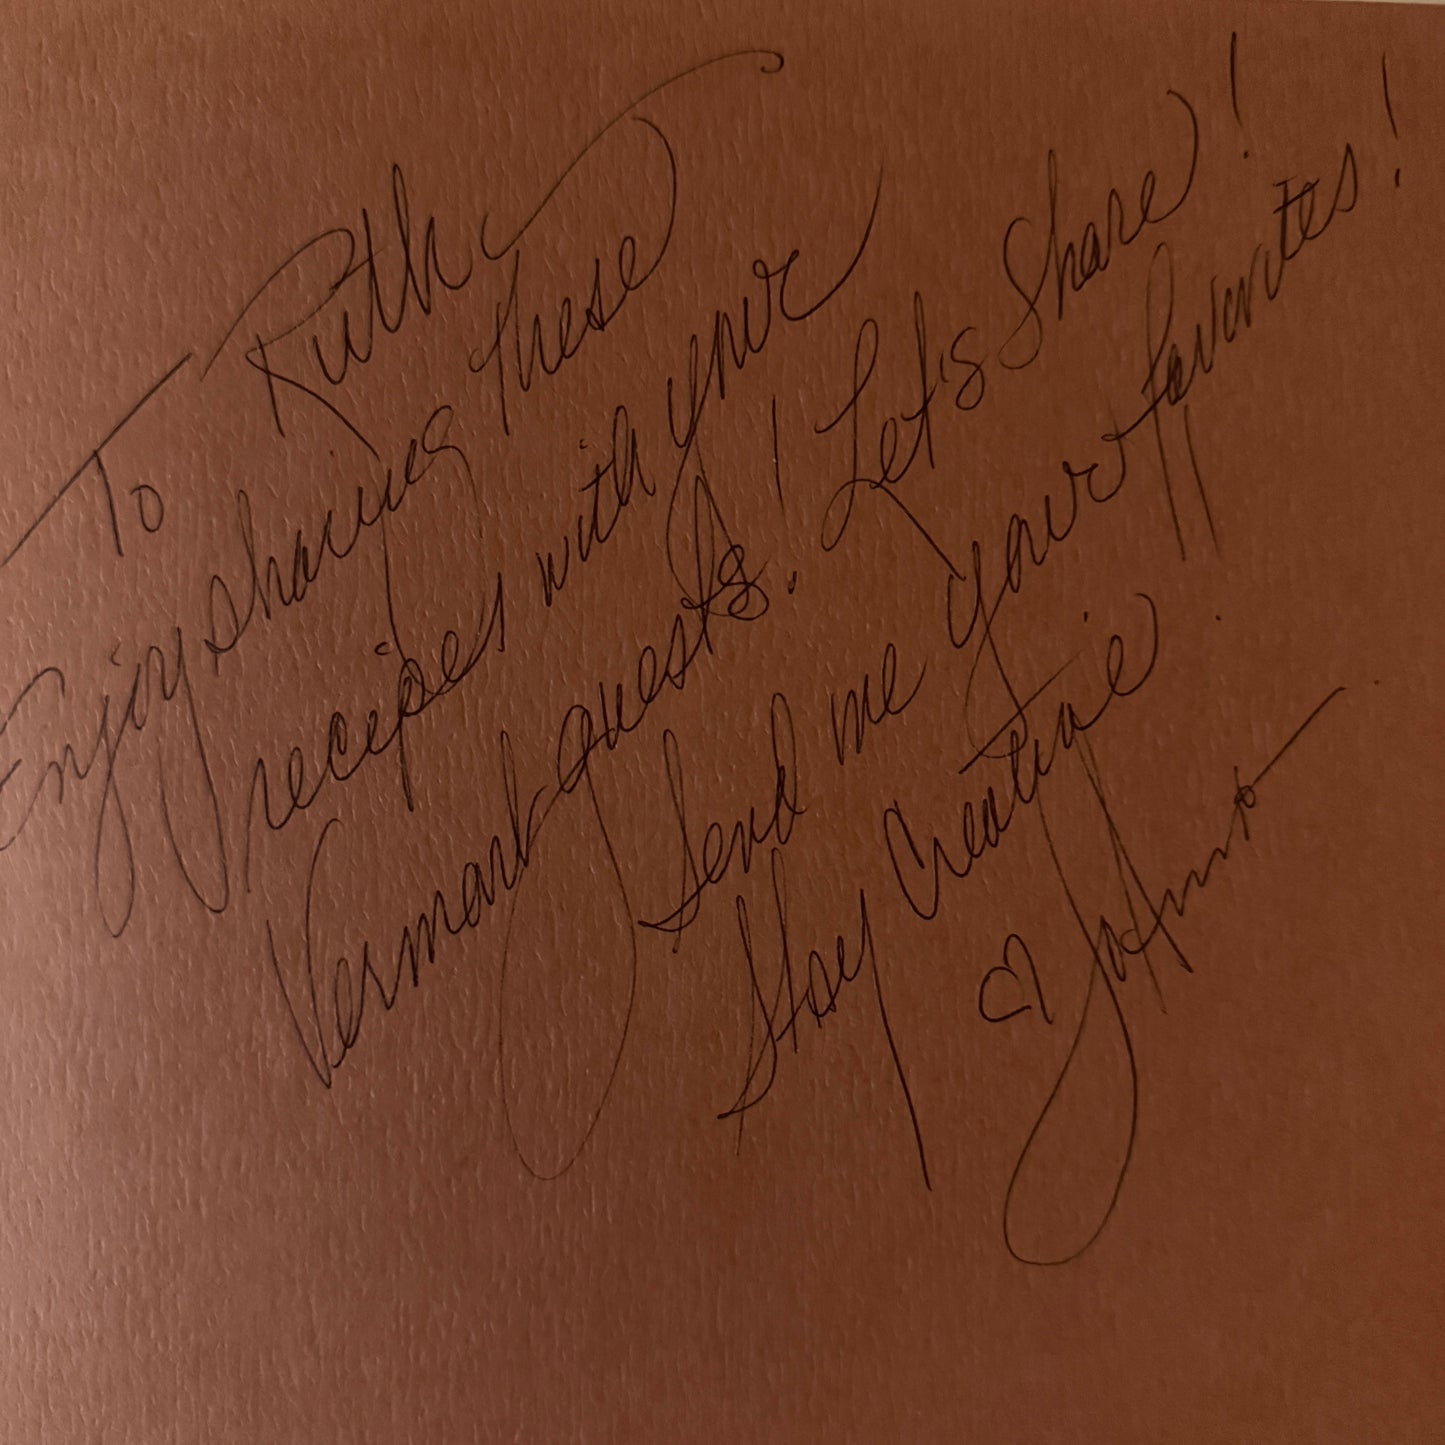 To Ruth
Enjoy sharing these
recipes with your
Vermont guests! Let's Share!
Send me your favorites!
Stay Creative